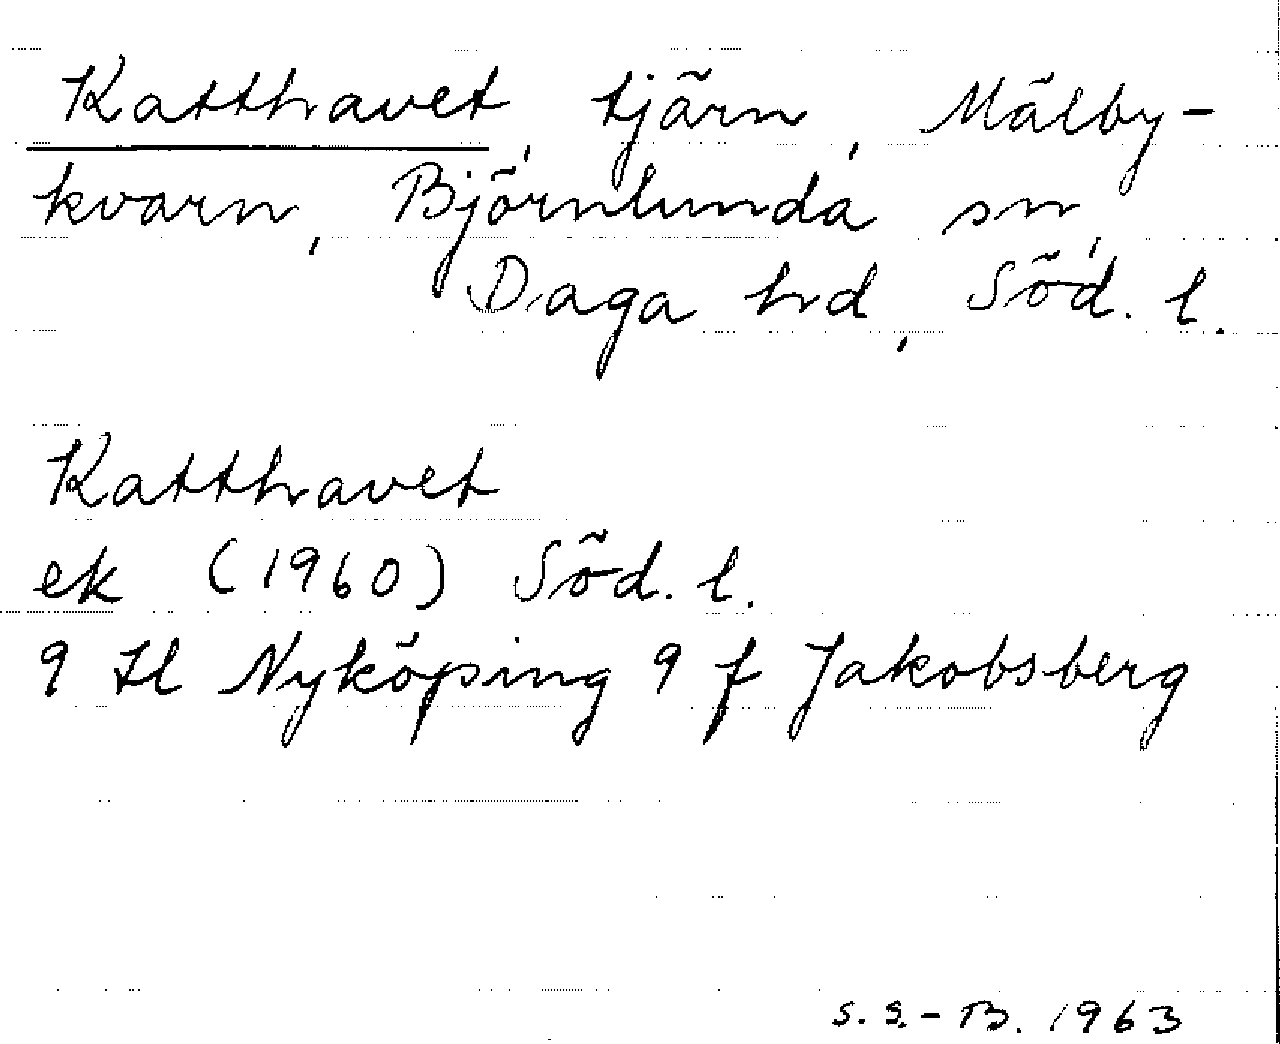 Katthavet, tjärn, Mälby-
kvarn, Björnlunda sn,
Daga hd, Söd. l.
Katthavet
ek (1960) Söd. l.
9 H Nyköping 9 f Jakobsberg
S. S.-B. 1963